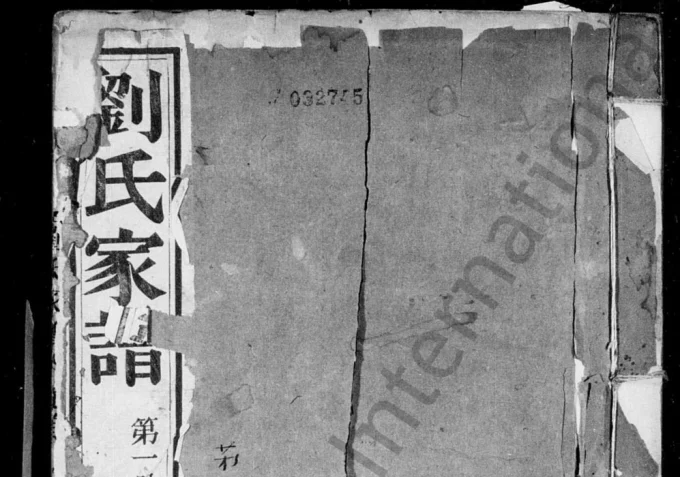 劉氏家譜
第一
032745
International